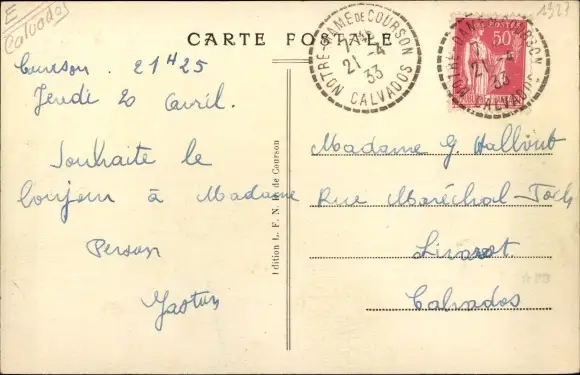 E
Calvados
CARTE POSTALE
NOTRE-DAME DE COURSON
21 -4
33
CALVADOS
1327
50c
POSTES
NOTRE-DAME DE COURSON
21 -4
33
CALVADOS
Courson. 21H25
Jeudi 20 Avril.
Souhaite le
bonjour à Madame
Person
Gaston
Edition L. F. N. D. de Courson
Madame G. Hallbout
Rue Maréchal-Foch
Livarot.
Calvados